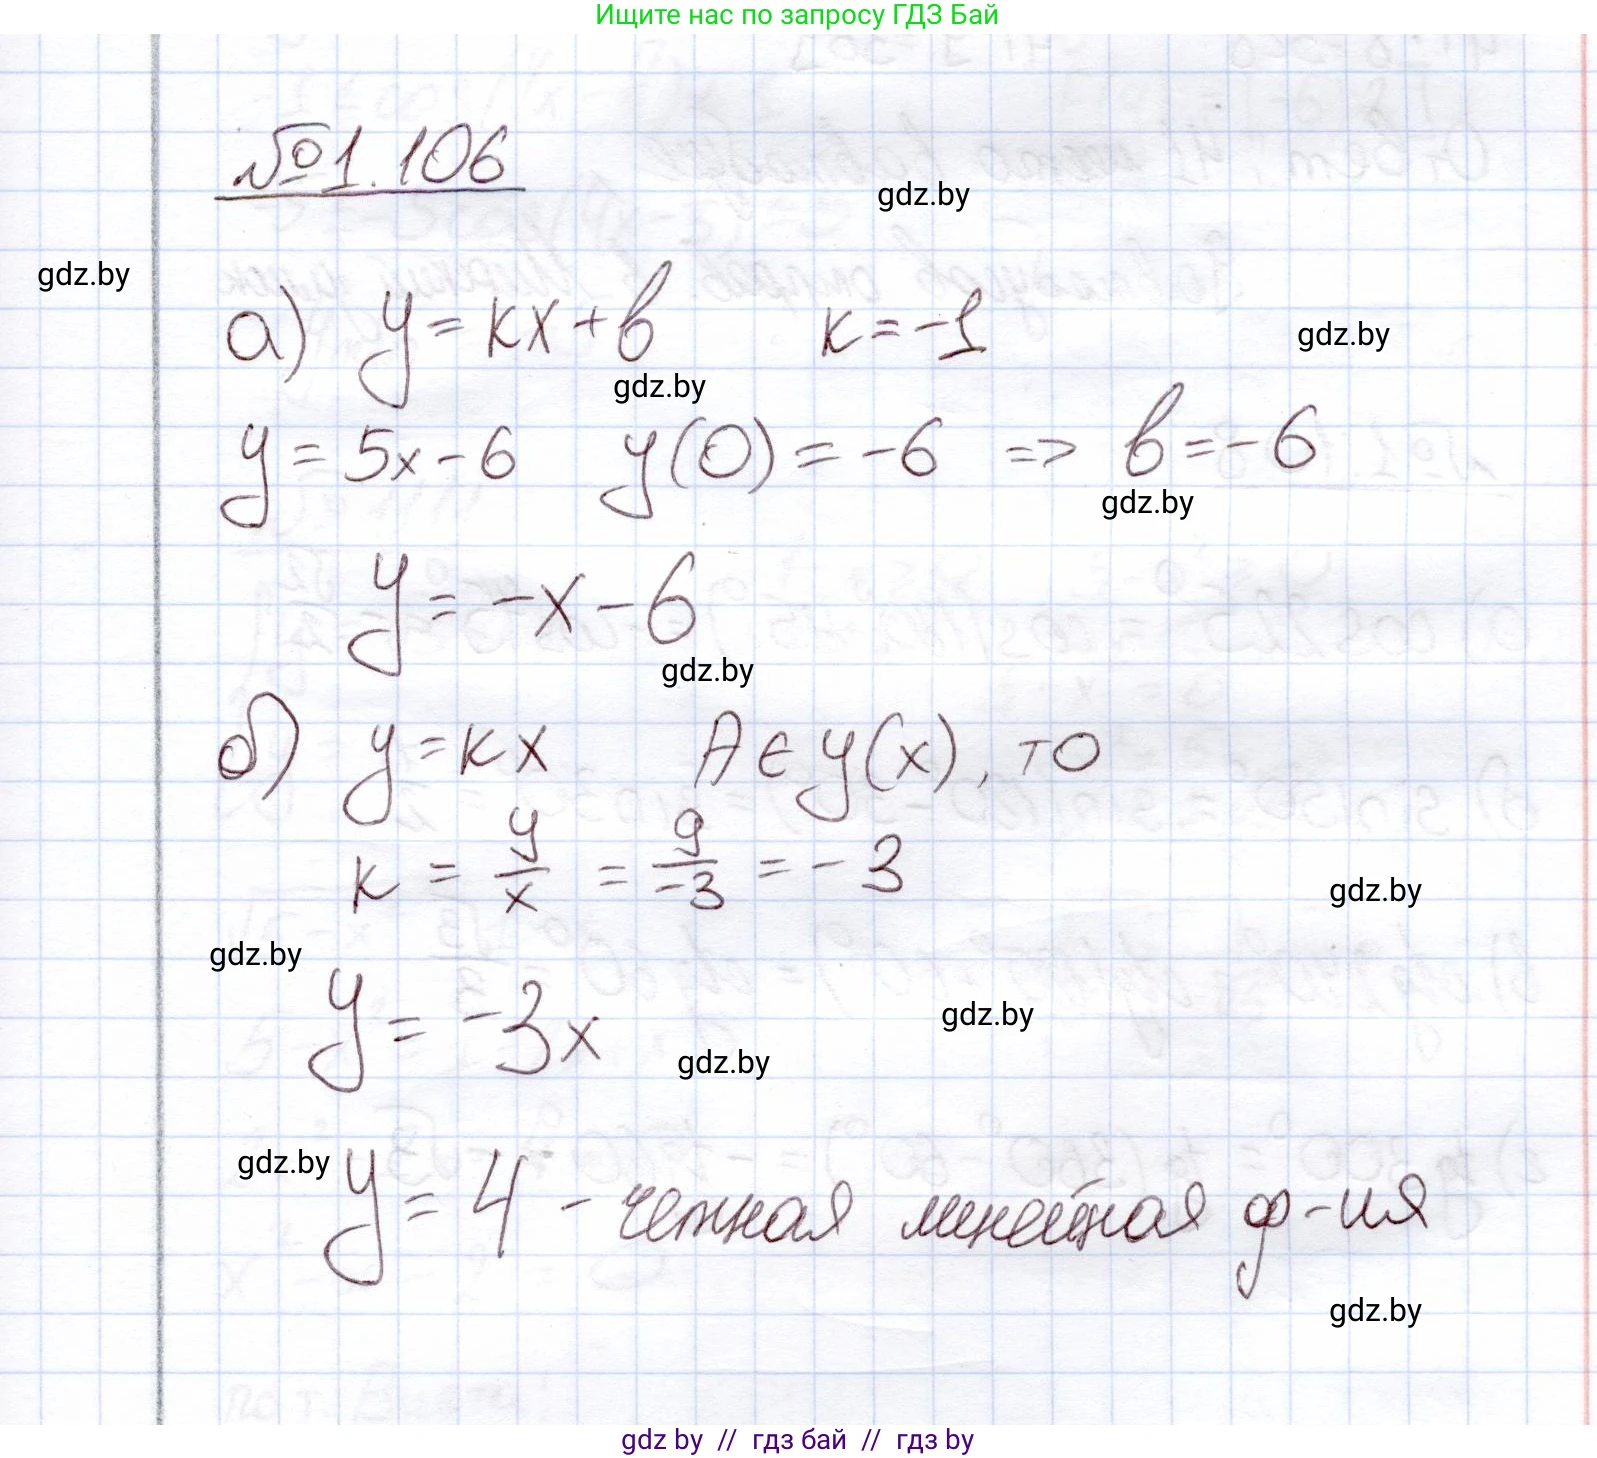 Ищите нас по запросу ГДЗ Бай
№1.106
gdz.by
gdz.by
а) y = kx + b k = -1
gdz.by
gdz.by
y = 5x - 6 y(0) = -6 => b = -6
gdz.by
y = -x - 6
gdz.by
б) y = kx A ∈ y(x), то
k = y/x = 9/-3 = -3
gdz.by
gdz.by
y = -3x
gdz.by
gdz.by
gdz.by
y = 4 - четная линейная ф-ия
gdz.by
gdz by // гдз бай // гдз by